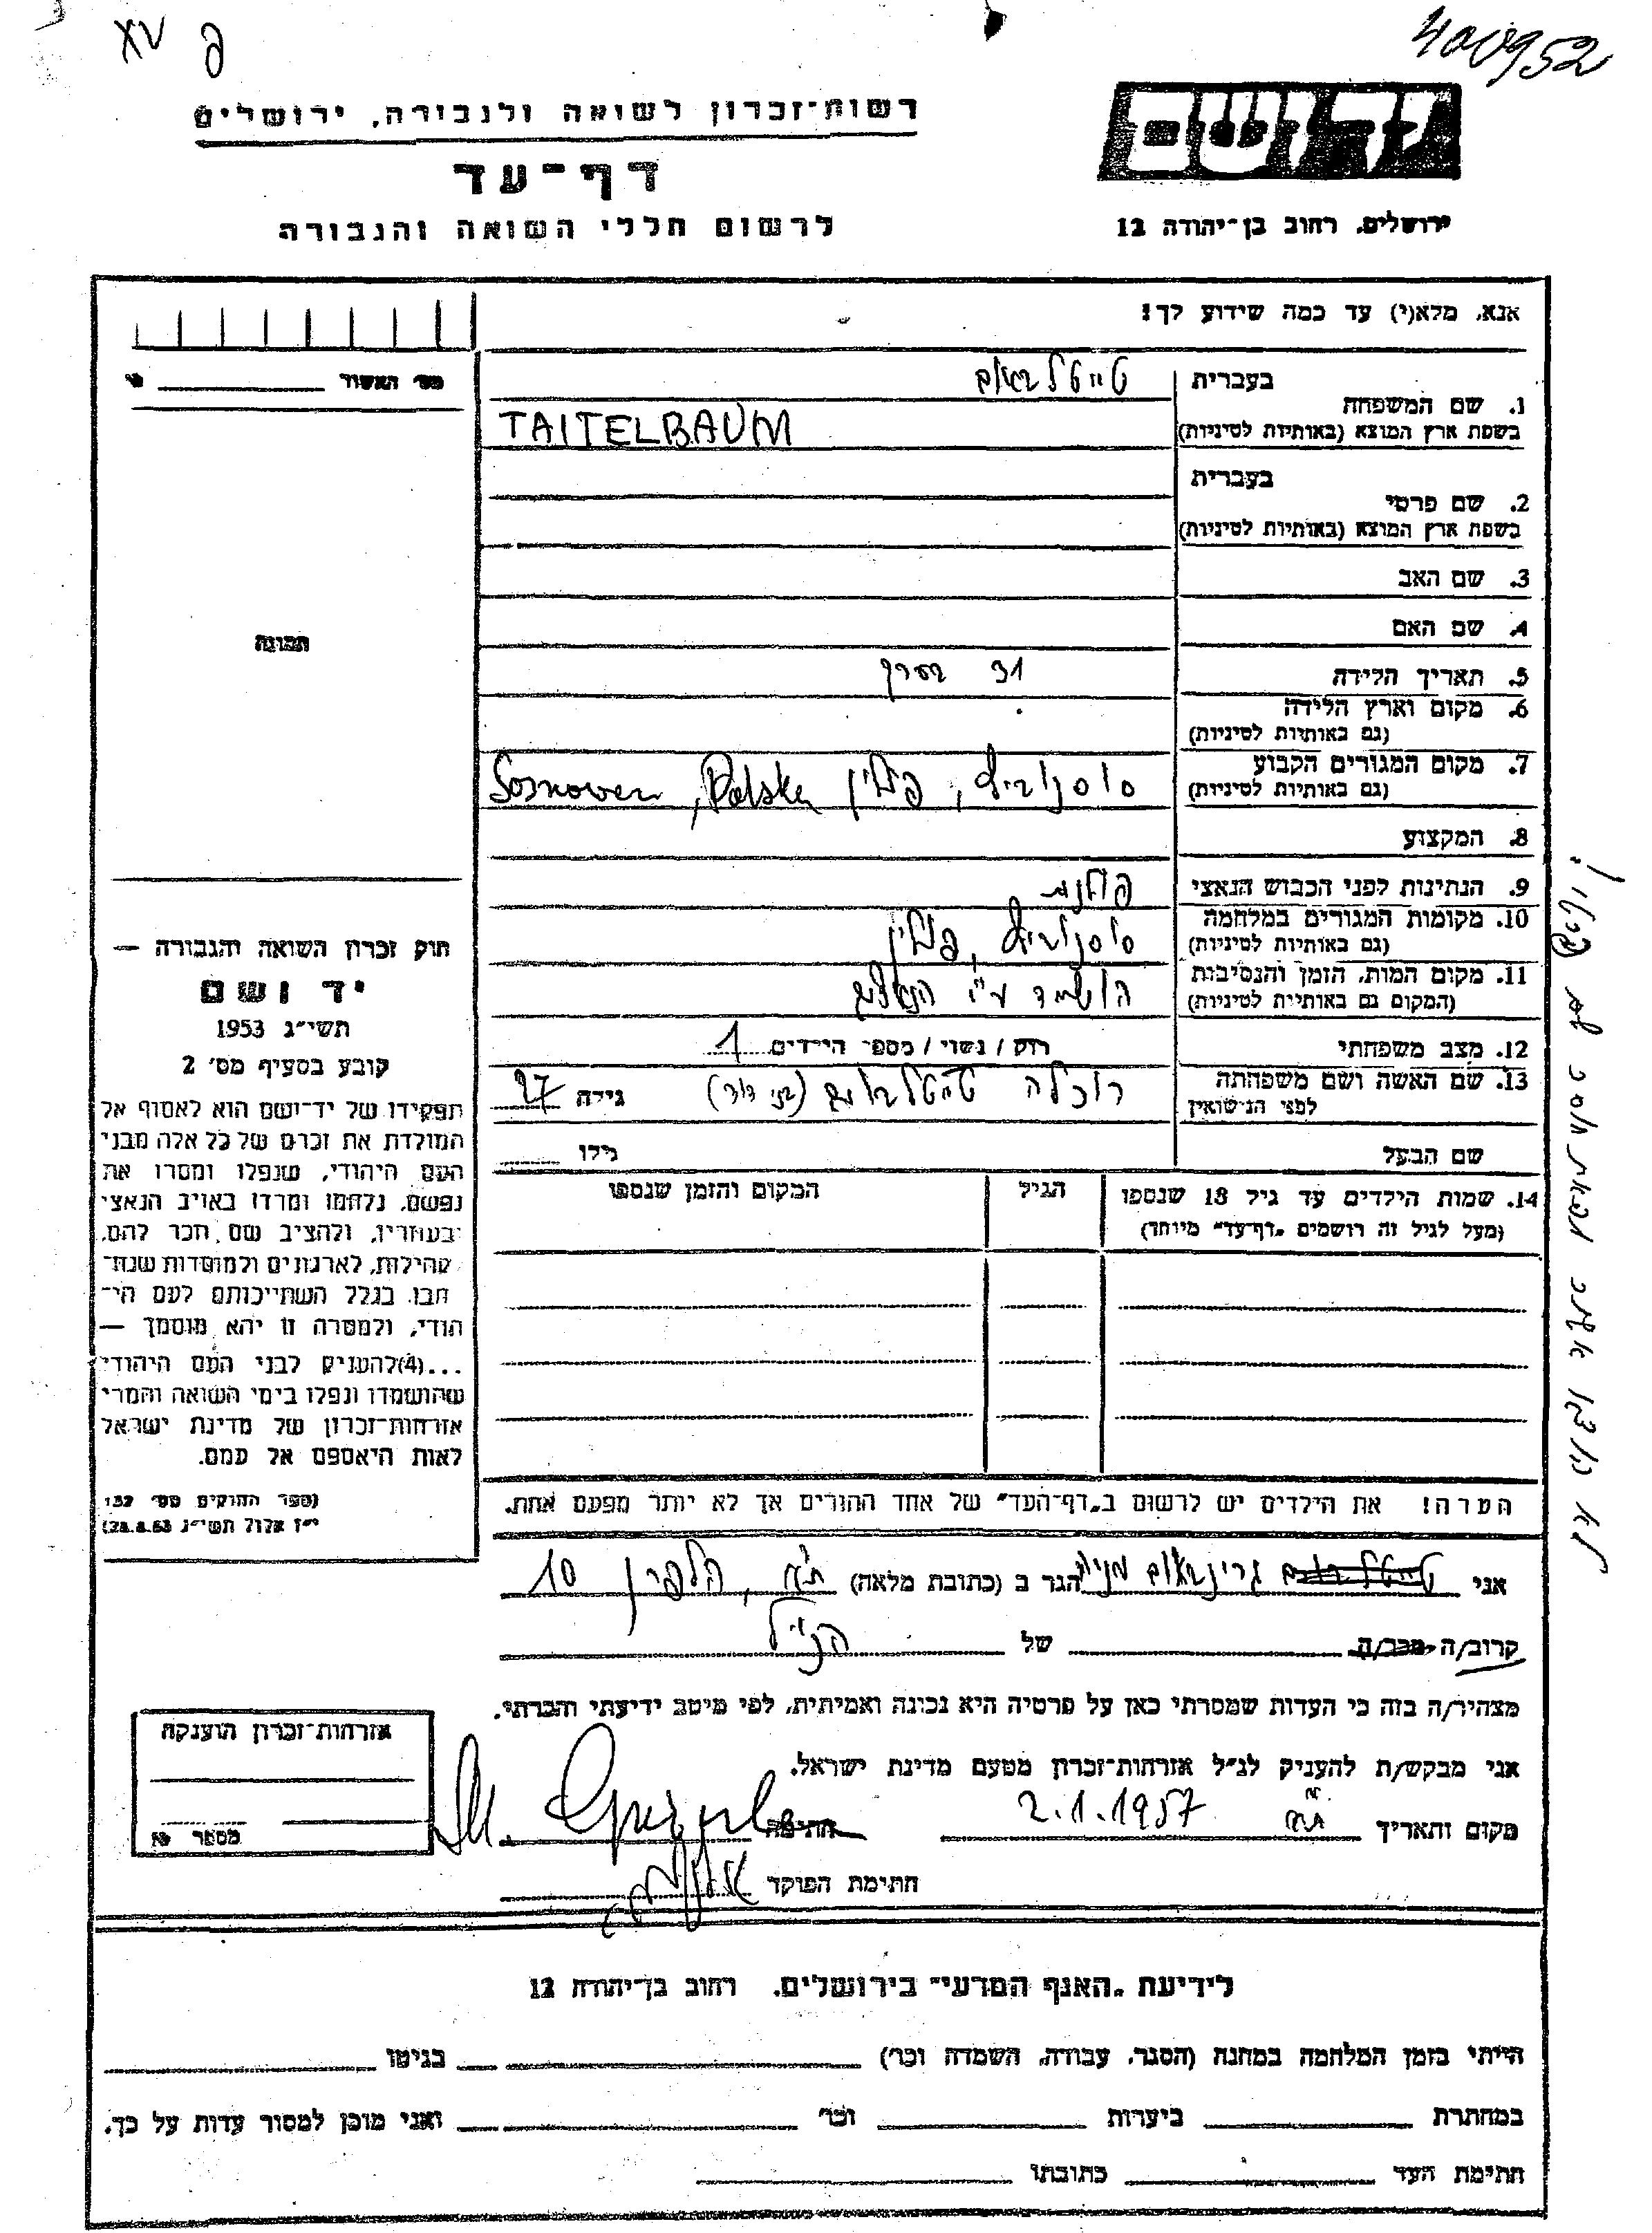 400952
XV
ידושם
רשות־זכרון לשואה ולגבורה, ירושלים
דף־עד
לרשום חללי השואה והגבורה
ירושלים, רחוב בן־יהודה 12
אנא, מלא(י) עד כמה שידוע לך!
בעברית טייטלבאום
1. שם המשפחה
בשפת ארץ המוצא (באותיות לטיניות) TAITELBAUM
בעברית
2. שם פרטי
בשפת ארץ המוצא (באותיות לטיניות)
3. שם האב
4. שם האם
5. תאריך הלידה 31 בערך
6. מקום וארץ הלידה
(גם באותיות לטיניות)
7. מקום המגורים הקבוע
(גם באותיות לטיניות) סוסנוביץ, פולין Polska,
8. המקצוע
9. הנתינות לפני הכבוש הנאצי פולנית
10. מקומות המגורים במלחמה
(גם באותיות לטיניות) סוסנוביץ, פולין
11. מקום המות, הזמן והנסיבות
(המקום גם באותיות לטיניות) הושמד ע"י הנאצים
12. מצב משפחתי רוק / נשוי / מספר הילדים 1
13. שם האשה ושם משפחתה
לפני הנישואין רוכלה טייטלבאום גילה 27
שם הבעל גילו
14. שמות הילדים עד גיל 18 שנספו הגיל המקום והזמן שנספו
(מעל לגיל זה רושמים "דף־עד" מיוחד)
הערה! את הילדים יש לרשום ב"דף־העד" של אחד ההורים אך לא יותר מפעם אחת.
מס' האשור
תמונה
חוק זכרון השואה והגבורה —
יד ושם
תשי"ג 1953
קובע בסעיף מס' 2
תפקידו של יד־ושם הוא לאסוף אל
המולדת את זכרם של כל אלה מבני
העם היהודי, שנפלו ומסרו את
נפשם, נלחמו ומרדו באויב הנאצי
ובעוזריו, ולהציב שם וזכר להם,
לקהילות, לארגונים ולמוסדות שנח־
רבו בגלל השתייכותם לעם הי־
הודי, ולמטרה זו יהא מוסמך —
...(4)להעניק לבני העם היהודי
שהושמדו ונפלו בימי השואה והמרי
אזרחות־זכרון של מדינת ישראל
לאות היאספם אל עמם.
(ספר החוקים מס' 132
י"ז אלול תשי"ג 28.8.53)
אני גרינבאום מניה הגר ב (כתובת מלאה) ת"א, הלפרין 10
קרוב/ה מכר/ה של הנ"ל
מצהיר/ה בזה כי העדות שמסרתי כאן על פרטיה היא נכונה ואמיתית, לפי מיטב ידיעתי והכרתי.
אני מבקש/ת להעניק לנ"ל אזרחות־זכרון מטעם מדינת ישראל.
מקום ותאריך 2.1.1957 חתימה
חתימת הפוקד
אזרחות־זכרון הוענקה
מספר
לידיעת "האגף המדעי" בירושלים, רחוב בן־יהודה 12
הייתי בזמן המלחמה במחנה (הסגר, עבודה, השמדה וכו') בגיטו
במחתרת ביערות וכו' ואני מוכן למסור עדות על כך.
חתימת העד כתובתו